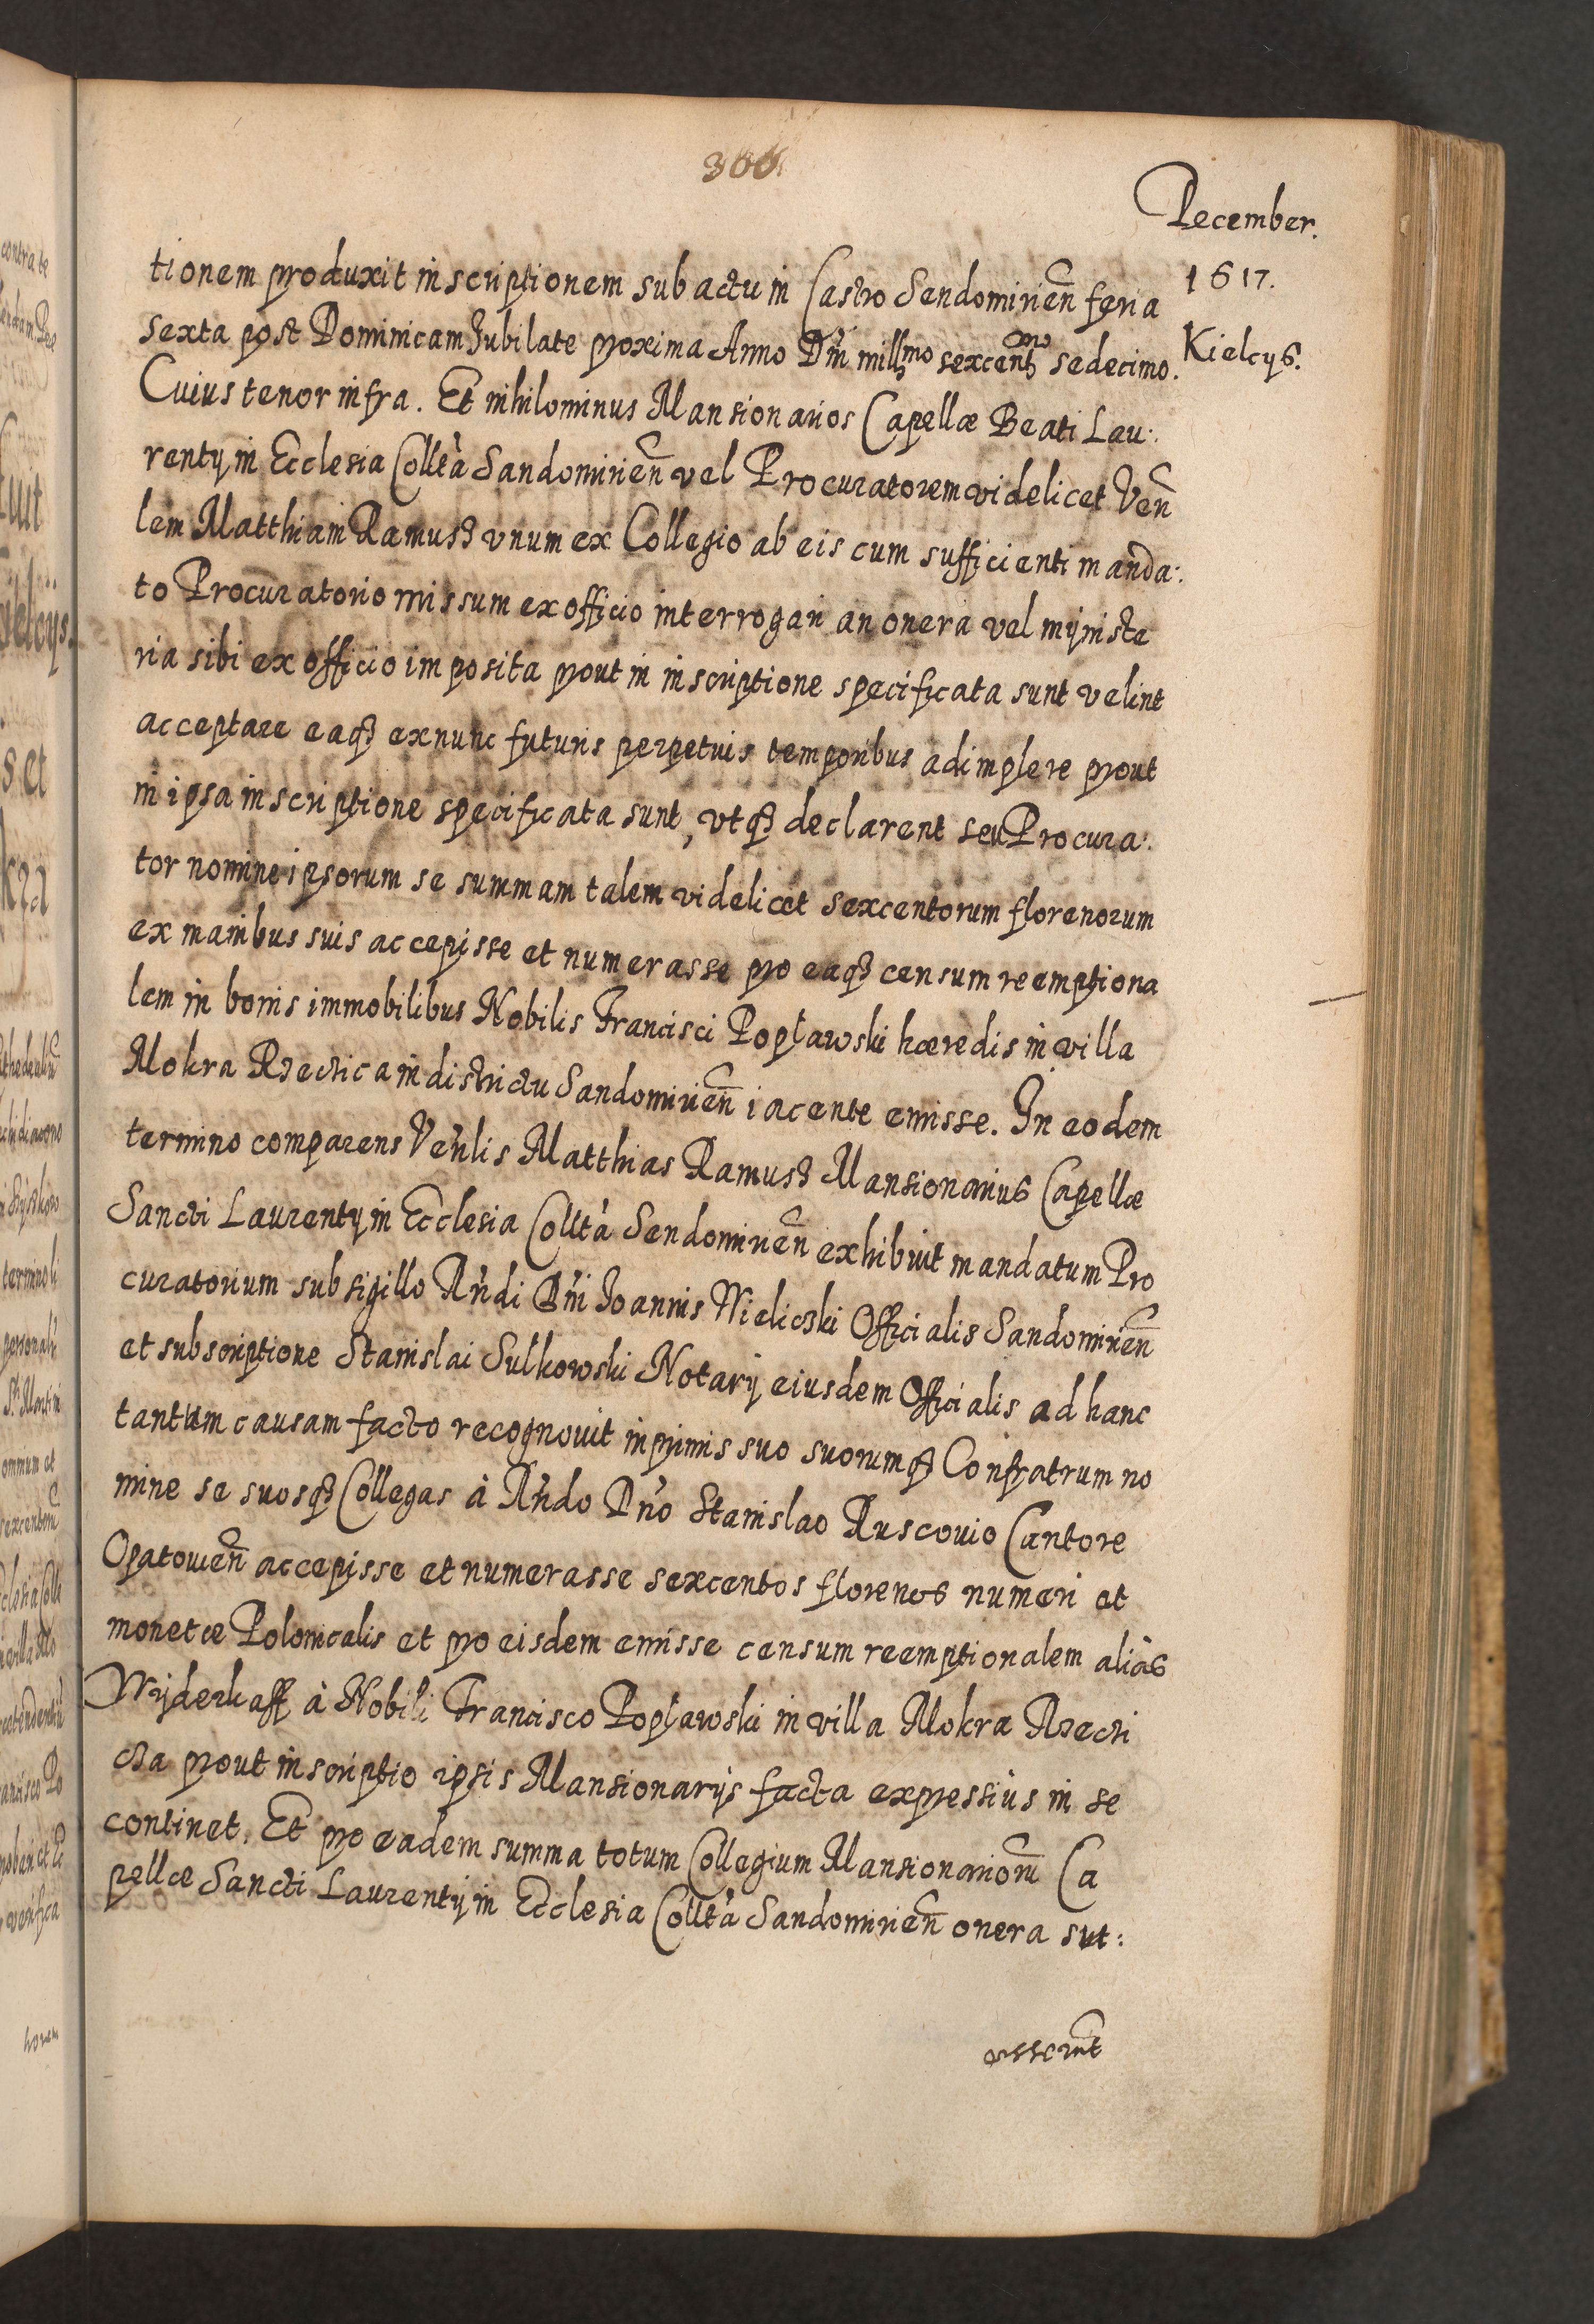 366
December.
1617.
Kielcys.
tionem produxit inscriptionem sub actu in Castro Sendomirien̄ feria
sexta post Dominicam Jubilate proxima Anno Dn̄i millmo sexcentmo sedecimo.
Cuius tenor infra. Et nihilominus Mansionarios Capellæ Beati Lau:
rentÿ in Ecclesia Colltà Sandomirien̄ vel Procuratorem videlicet Ven̄
lem Matthiam Ramusz vnum ex Collegio ab eis cum sufficienti manda:
to Procuratorio missum ex officio interrogari an onera vel mÿniste
ria sibi ex officio imposita prout in inscriptione specificata sunt velint
acceptare eaqȝ ex nunc futuris perpetuis temporibus adimplere prout
in ipsa inscriptione specificata sunt, vtqȝ declarent seu Procura:
tor nomine ipsorum se summam talem videlicet sexcentorum florenorum
ex manibus suis accepisse et numerasse pro eaqȝ censum reemptiona
lem in bonis immobilibus Nobilis Francisci Popławski hæredis in villa
Mokra Rzecżica in districtu Sandomirien̄ iacente emisse. In eodem
termino comparens Ven̄lis Matthias Ramusz Mansionarius Capellæ
Sancti Laurentÿ in Ecclesia Colltà Sendomirien̄ exhibuit mandatum Pro
curatorium sub sigillo Rn̄di Dn̄i Joannis Wielicski Officialis Sandomirien̄
et subscriptione Stanislai Sulkowski Notarÿ eiusdem Officialis ad hanc
tantum causam facto recognouit inprimis suo suorumqȝ Confratrum no
mine se suosqȝ Collegas à Rn̄do Dn̄o Stanislao Ruscouio Cantore
Opatouien̄ accepisse et numerasse sexcentos florenos numeri et
monetæ Polonicalis et pro eisdem emisse censum reemptionalem aliàs
Wÿderkaff à Nobili Francisco Popławski in villa Mokra Rzeczi
cza prout inscriptio ipsis Mansionarÿs facta expressiùs in se
continet. Et pro eadem summa totum Collegium Mansionariorū Ca
pellæ Sancti Laurentÿ in Ecclesia Colltà Sandomirien̄ onera sut: